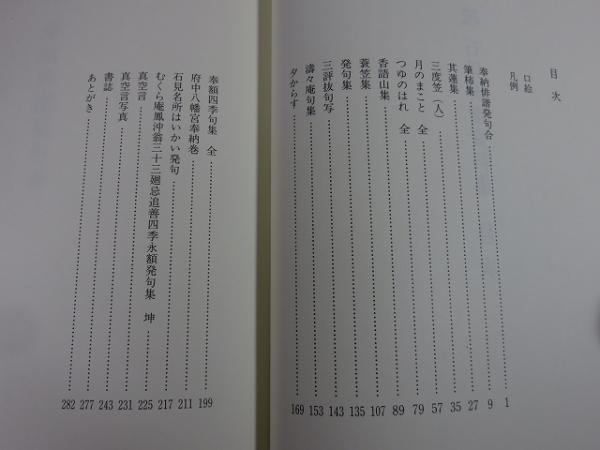 目次
口絵
凡例
奉納俳諧発句合 1
筆柿集 9
其蓮集 27
三度笠（人） 35
月のまこと 全 57
つゆのはれ 全 79
香語山集 89
蓑笠集 107
発句集 135
三評抜句写 143
濤々庵句集 153
夕からす 169
奉額四季句集 全 199
府中八幡宮奉納巻 211
石見名所はいかい発句 217
むくら庵鳳沖翁三十三廻忌追善四季永額発句集 坤 225
真空言 231
真空言写真 243
書誌 277
あとがき 282